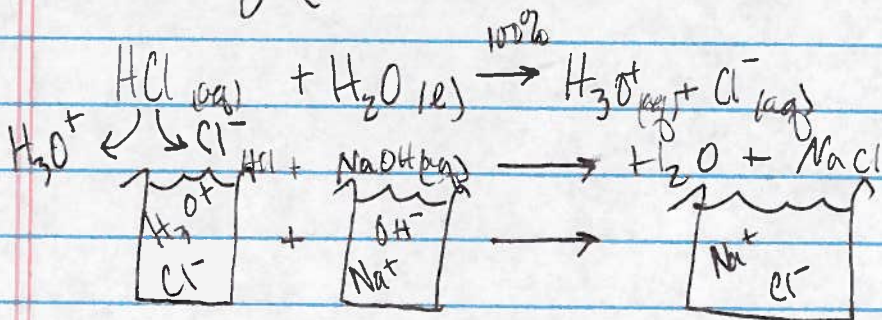 100%
HCl (aq) + H₂O (l) → H₃O⁺ (aq) + Cl⁻ (aq)
H₃O⁺ ↙ ↘ Cl⁻
HCl + NaOH (aq) → H₂O + NaCl
H₃O⁺ Cl⁻ + OH⁻ Na⁺ → Na⁺ Cl⁻